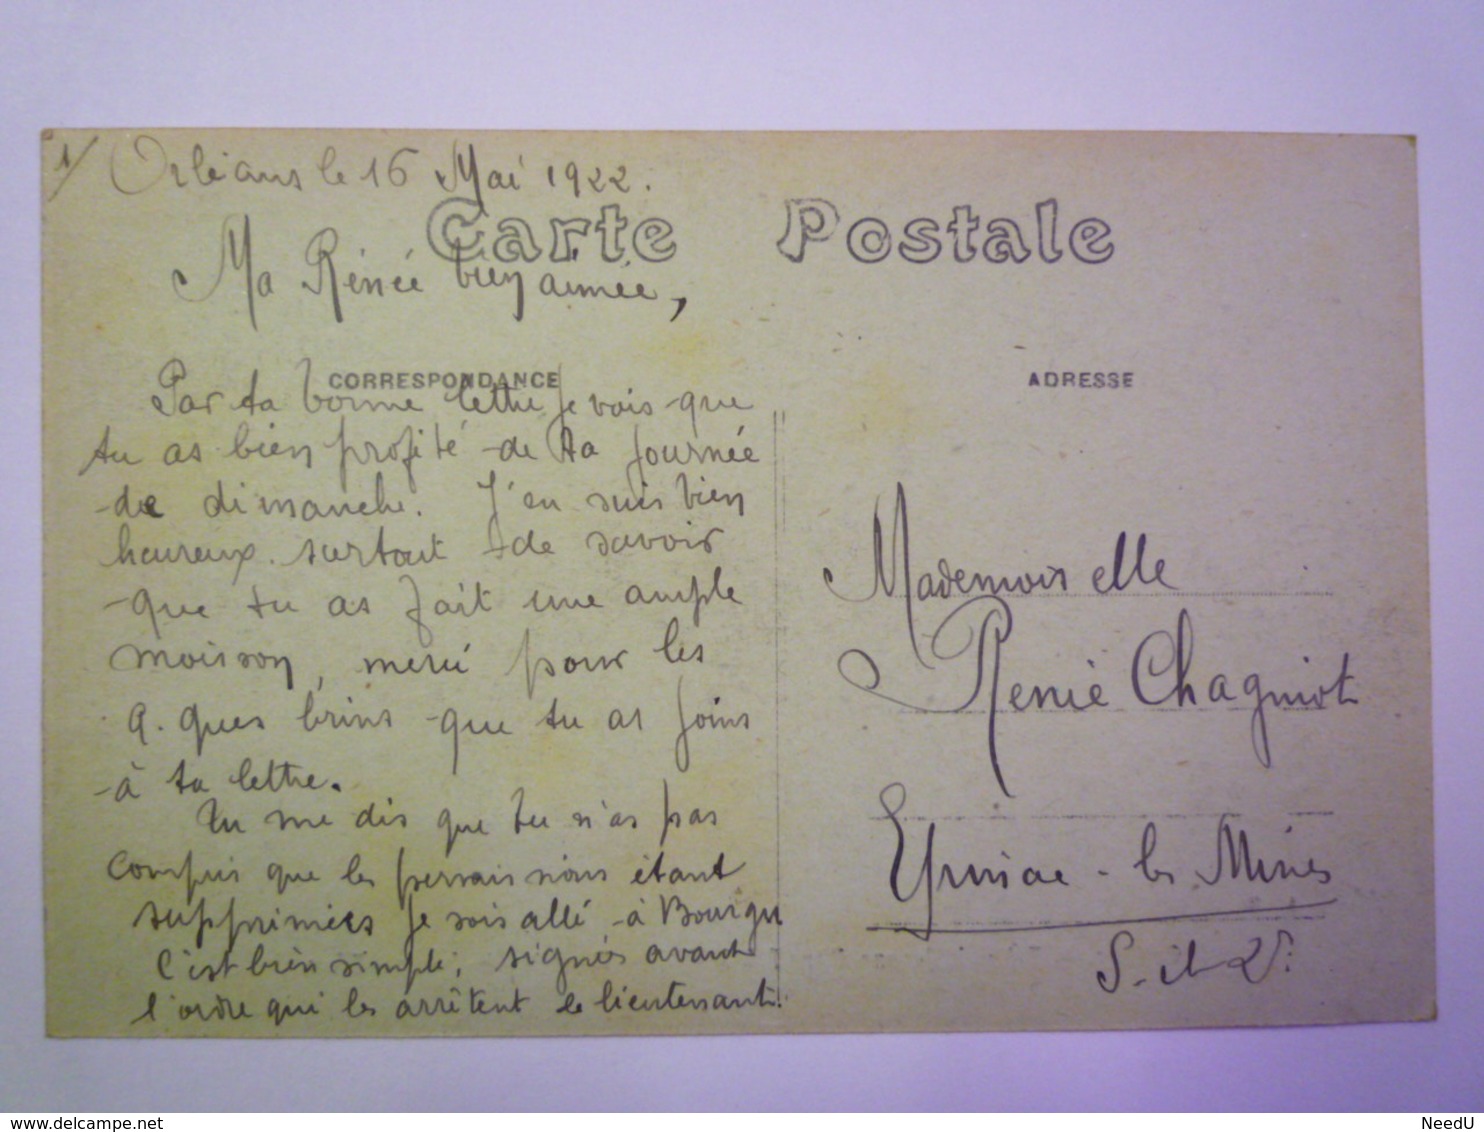 1/ Orléans le 16 Mai 1922.
Carte Postale
Ma Rénée bien aimée,
CORRESPONDANCE
Par ta bonne lettre je vois que
tu as bien profité de ta journée
de dimanche. J'en suis bien
heureux. surtout de savoir
que tu as fait une ample
moisson, merci pour les
q. ques brins que tu as joins
à ta lettre.
Tu me dis que tu n'as pas
compris que les permissions étant
supprimées je sois allé à Bourgu
C'est bien simple, signés avant
l'ordre qui les arrêtent le lieutenant.
ADRESSE
Mademoiselle
Renée Chagniot
Epinac-les Mines
S. et L.
www.delcampe.net
NeedU